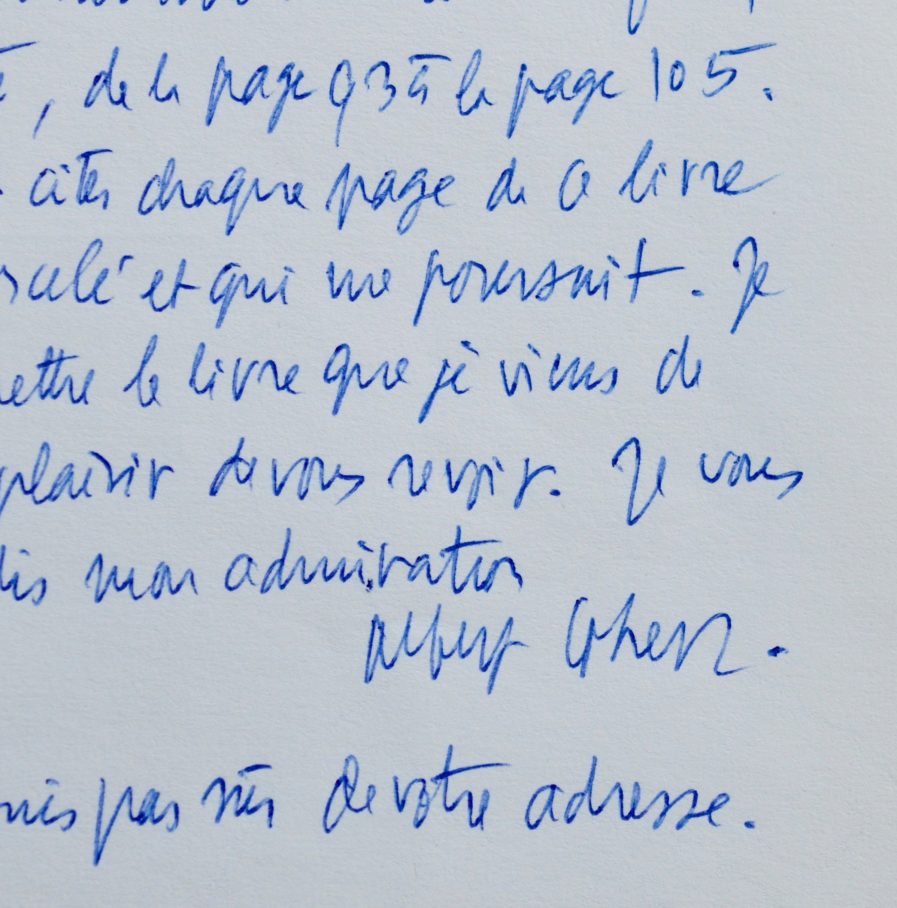 , de la page 93 à la page 105.
citer chaque page de ce livre
et qui me poursuit. Je
le livre que je viens de
plaisir de vous revoir. Je vous
dis mon admiration
Albert Cohen.
pas sûr de votre adresse.